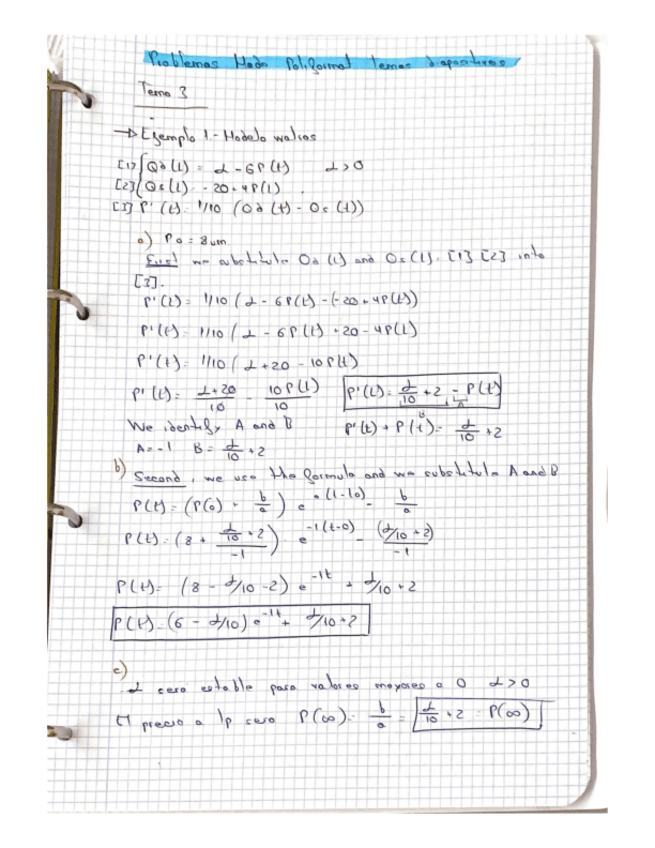 Problemas Hada Poliformat temas diapositivas
Tema 3
→ Ejemplo 1.- Modelo walras
[1] Qd(t) = α - 6P(t)   α > 0
[2] Qs(t) = -20 + 4P(t)
[3] P'(t) = 1/10 (Qd(t) - Qs(t))
a) P0 = 8um
First we substitute Qd(t) and Qs(t). [1] [2] into
[3].
P'(t) = 1/10 (α - 6P(t) - (-20 + 4P(t))
P'(t) = 1/10 (α - 6P(t) + 20 - 4P(t)
P'(t) = 1/10 (α + 20 - 10P(t)
P'(t) = α+20/10 - 10P(t)/10   P'(t) = α/10 + 2 - P(t)
We identify A and B   P'(t) + P(t) = α/10 + 2
A = -1   B = α/10 + 2
b) Second, we use the formula and we substitute A and B
P(t) = (P(0) + b/a) e^a(t-t0) - b/a
P(t) = (8 + α/10+2/-1) e^-1(t-0) - (α/10+2)/-1
P(t) = (8 - α/10 - 2) e^-1t + α/10 + 2
P(t) = (6 - α/10) e^-1t + α/10 + 2
c)
α cera estable para valores mayores a 0   α > 0
El precio a lp sera P(∞) = b/a = α/10 + 2 = P(∞)